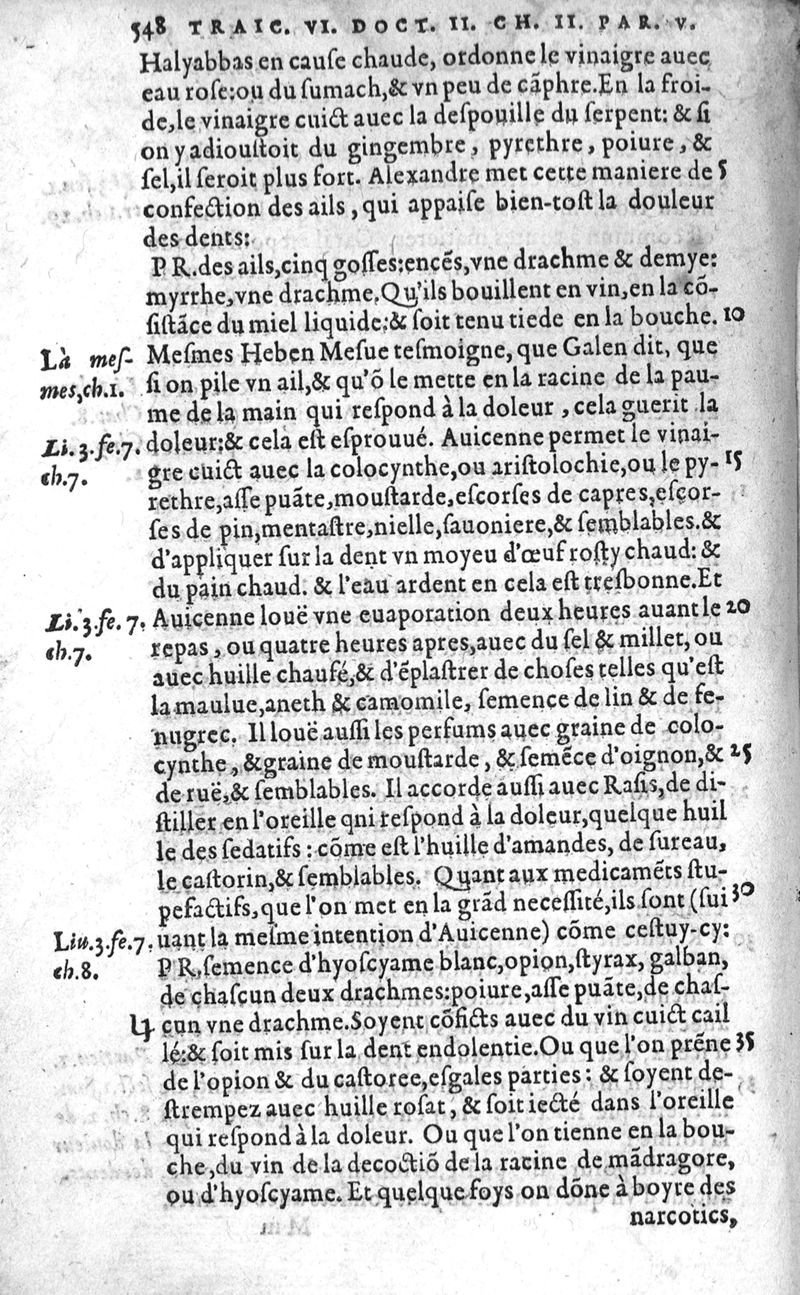 548 TRAIC. VI. DOCT. II. CH. II. PAR. V.
Halyabbas en cauſe chaude, ordonne le vinaigre auec
eau roſe:ou du ſumach,& vn peu de cãphre.En la froi-
de,le vinaigre cuict auec la deſpouille du ſerpent: & ſi
on y adiouſtoit du gingembre, pyrethre, poiure, &
ſel,il ſeroit plus fort. Alexandre met cette maniere de 5
confection des ails, qui appaiſe bien-toſt la douleur
des dents:
P R.des ails,cinq goſſes:encẽs,vne drachme & demye:
myrrhe,vne drachme.Qu'ils bouillent en vin,en la cõ-
ſiſtãce du miel liquide:& ſoit tenu tiede en la bouche. 10
Là meſ- Meſmes Heben Meſue teſmoigne, que Galen dit, que
mes,ch.1. ſi on pile vn ail,& qu'õ le mette en la racine de la pau-
me de la main qui reſpond à la doleur, cela guerit la
Li.3.fe.7. doleur:& cela eſt eſprouué. Auicenne permet le vinai-
ch.7. gre cuict auec la colocynthe,ou ariſtolochie,ou le py- 15
rethre,aſſe puãte,mouſtarde,eſcorſes de capres,eſcor-
ſes de pin,mentaſtre,nielle,ſauoniere,& ſemblables.&
d'appliquer ſur la dent vn moyeu d'œuf roſty chaud: &
du pain chaud. & l'eau ardent en cela eſt treſbonne.Et
Li.3.fe.7. Auicenne louë vne euaporation deux heures auant le 20
ch.7. repas, ou quatre heures apres,auec du ſel & millet, ou
auec huille chaufé,& d'ẽplaſtrer de choſes telles qu'eſt
la maulue,aneth & camomile, ſemence de lin & de fe-
nugrec. Il louë auſſi les perfums auec graine de colo-
cynthe, &graine de mouſtarde, & ſemẽce d'oignon,& 25
de ruë,& ſemblables. Il accorde auſſi auec Raſis,de di-
ſtiller en l'oreille qni reſpond à la doleur,quelque huil
le des ſedatifs : cõme eſt l'huille d'amandes, de ſureau,
le caſtorin,& ſemblables. Quant aux medicamẽts ſtu-
pefactifs,que l'on met en la grãd neceſſité,ils ſont (ſui 30
Liu.3.fe.7. uant la meſme intention d'Auicenne) cõme ceſtuy-cy:
ch.8. P R,ſemence d'hyoſcyame blanc,opion,ſtyrax, galban,
de chaſcun deux drachmes:poiure,aſſe puãte,de chaſ-
cun vne drachme.Soyent cõficts auec du vin cuict cail
lé:& ſoit mis ſur la dent endolentie.Ou que l'on prẽne 35
de l'opion & du caſtoree,eſgales parties : & ſoyent de-
ſtrempez auec huille roſat, & ſoit iecté dans l'oreille
qui reſpond à la doleur. Ou que l'on tienne en la bou-
che,du vin de la decoctiõ de la racine de mãdragore,
ou d'hyoſcyame. Et quelque foys on dõne à boyre des
narcotics,